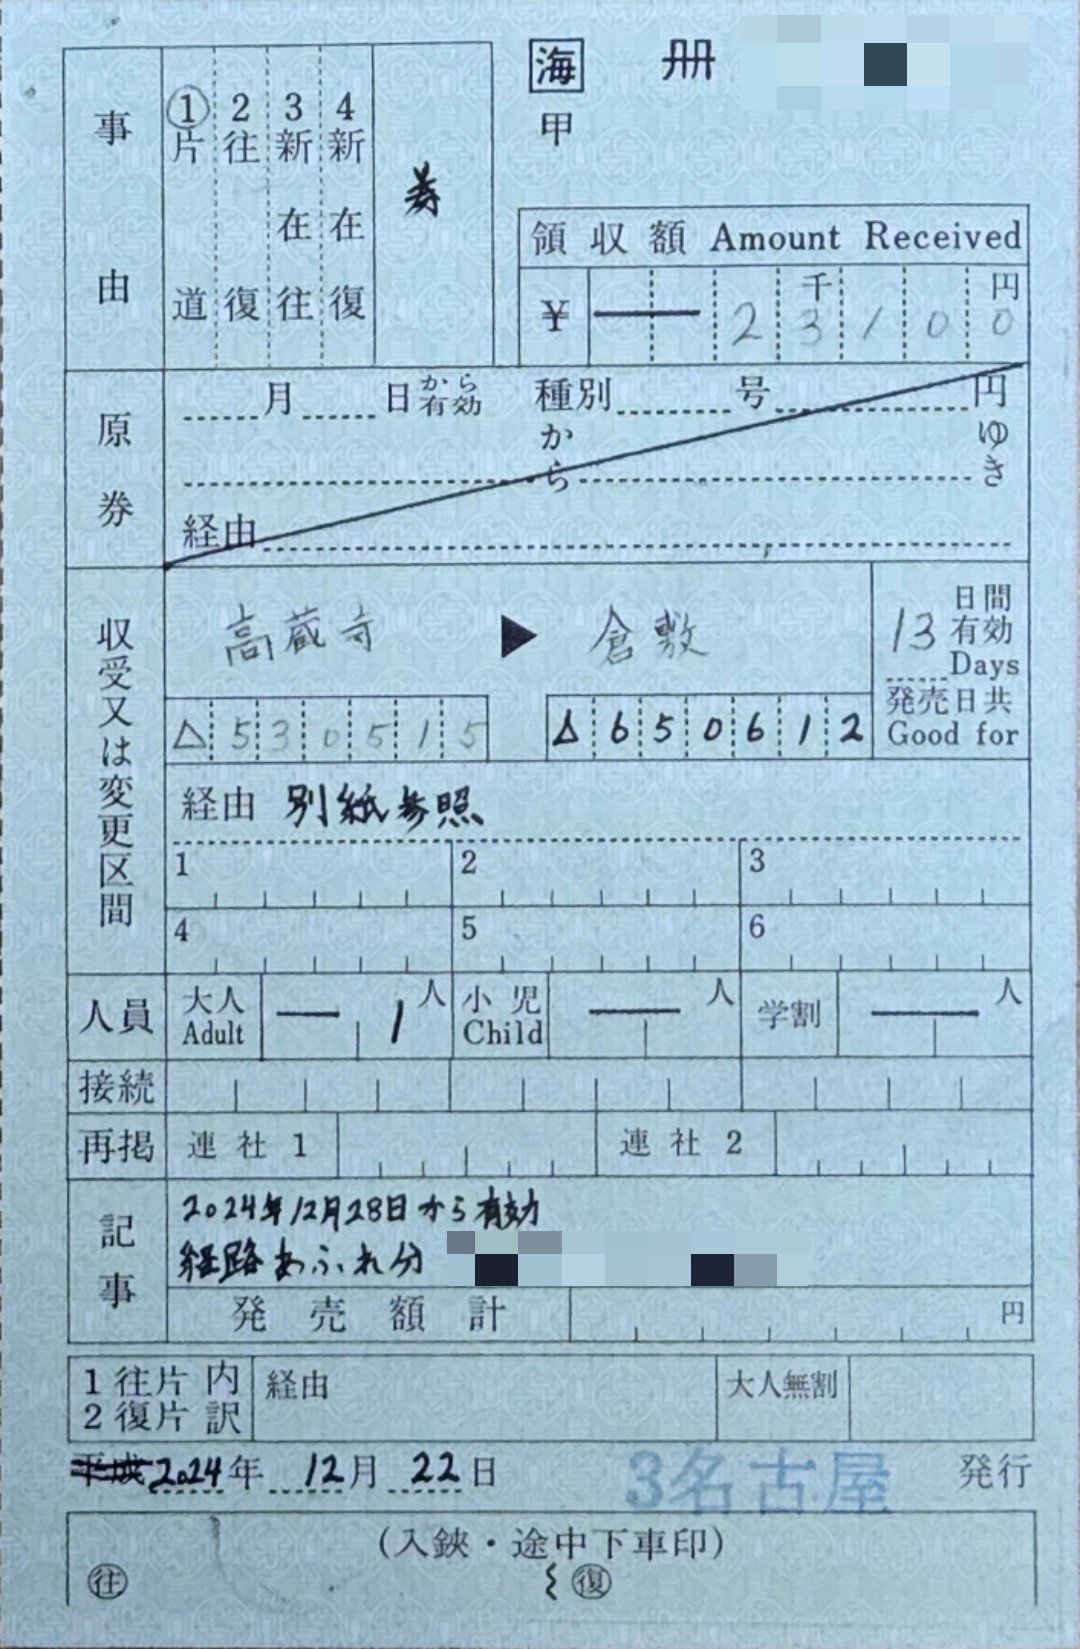 海 冊
甲
事由
1片道
2往復
3新在往
4新在復
領収額 Amount Received
¥ 2 3千 1 0 0円
原券
月 日から有効 種別 号 円
から ゆき
経由
収受又は変更区間
高蔵寺 ▶ 倉敷
13日間有効 Days
発売日共 Good for
△530515 △650612
経由 別紙参照
1 2 3
4 5 6
人員 大人 Adult 1人 小児 Child 人 学割 人
接続
再掲 連社1 連社2
記事
2024年12月28日から有効
経路あふれ分
発売額計 円
1往片 2復片 内訳 経由 大人無割
平成 2024年 12月 22日 3名古屋 発行
(入鋏・途中下車印)
往 復